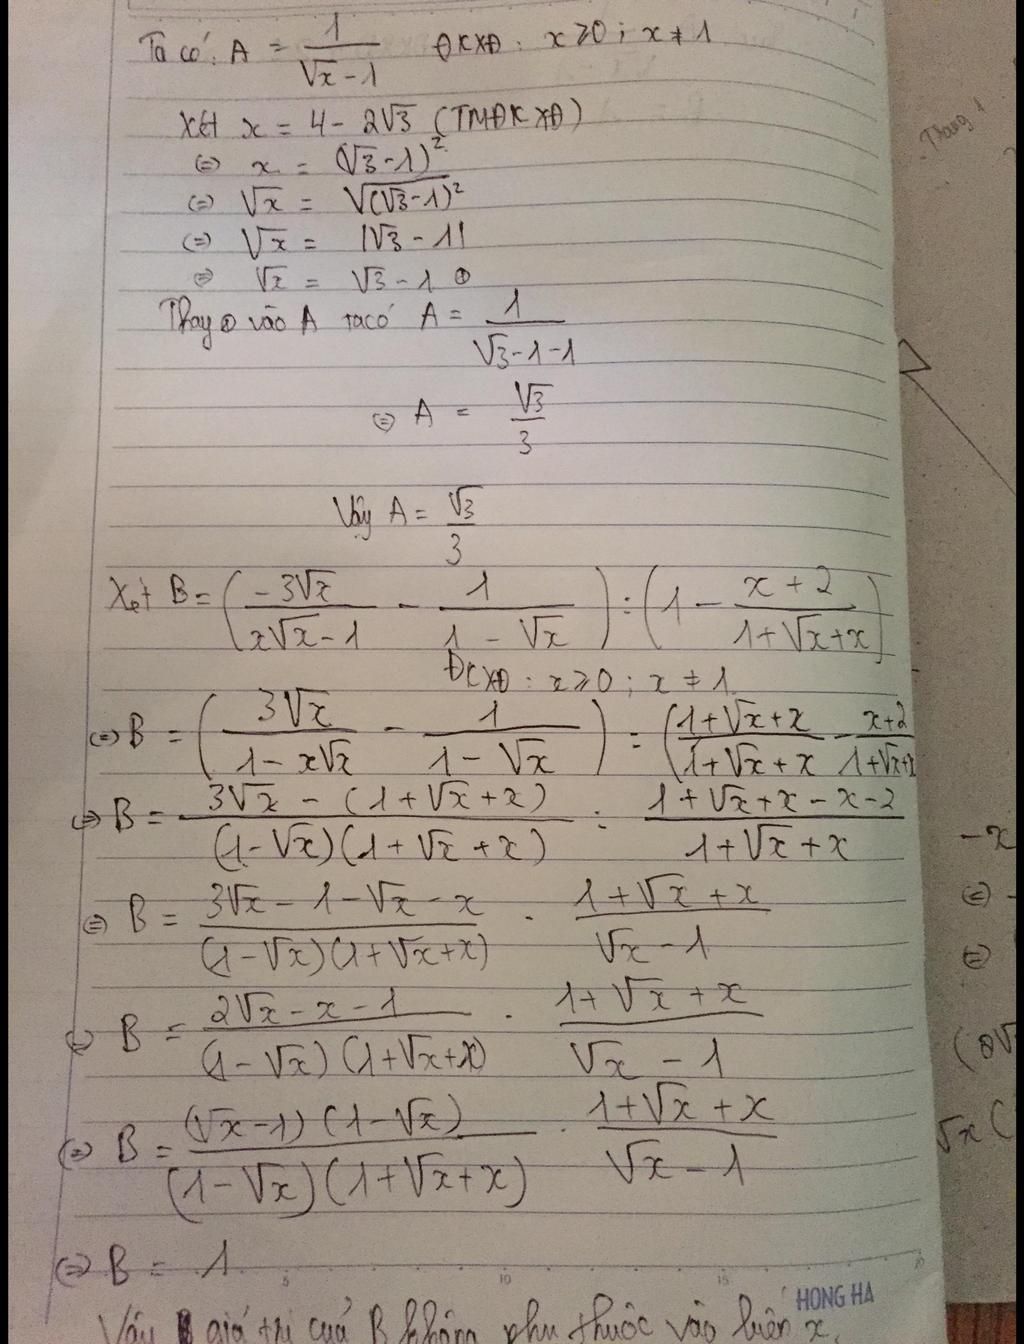 Ta có: A = 1/(√x - 1) ĐKXĐ: x ≥ 0; x ≠ 1
Xét x = 4 - 2√3 (TMĐKXĐ)
⇔ x = (√3-1)²
⇔ √x = √((√3-1)²)
⇔ √x = |√3 - 1|
⇔ √x = √3 - 1 ①
Thay ① vào A ta có A = 1/(√3-1-1)
⇔ A = √3/3
Vậy A = √3/3
Xét B = (-3√x/(x√x-1) - 1/(1-√x)) : (1 - (x+2)/(1+√x+x))
ĐKXĐ: x ≥ 0; x ≠ 1
⇔ B = (3√x/(1-x√x) - 1/(1-√x)) : ((1+√x+x)/(1+√x+x) - (x+2)/(1+√x+x
⇔ B = (3√x - (1+√x+x))/((1-√x)(1+√x+x)) : (1+√x+x-x-2)/(1+√x+x)
⇔ B = (3√x - 1 - √x - x)/((1-√x)(1+√x+x)) . (1+√x+x)/(√x-1)
⇔ B = (2√x - x - 1)/((1-√x)(1+√x+x)) . (1+√x+x)/(√x-1)
⇔ B = ((√x-1)(1-√x))/((1-√x)(1+√x+x)) . (1+√x+x)/(√x-1)
⇔ B = 1
5 10 15 20
HONG HA
Vậy giá trị của B không phụ thuộc vào biến x.
-x
⇔ -
⇔
√x (